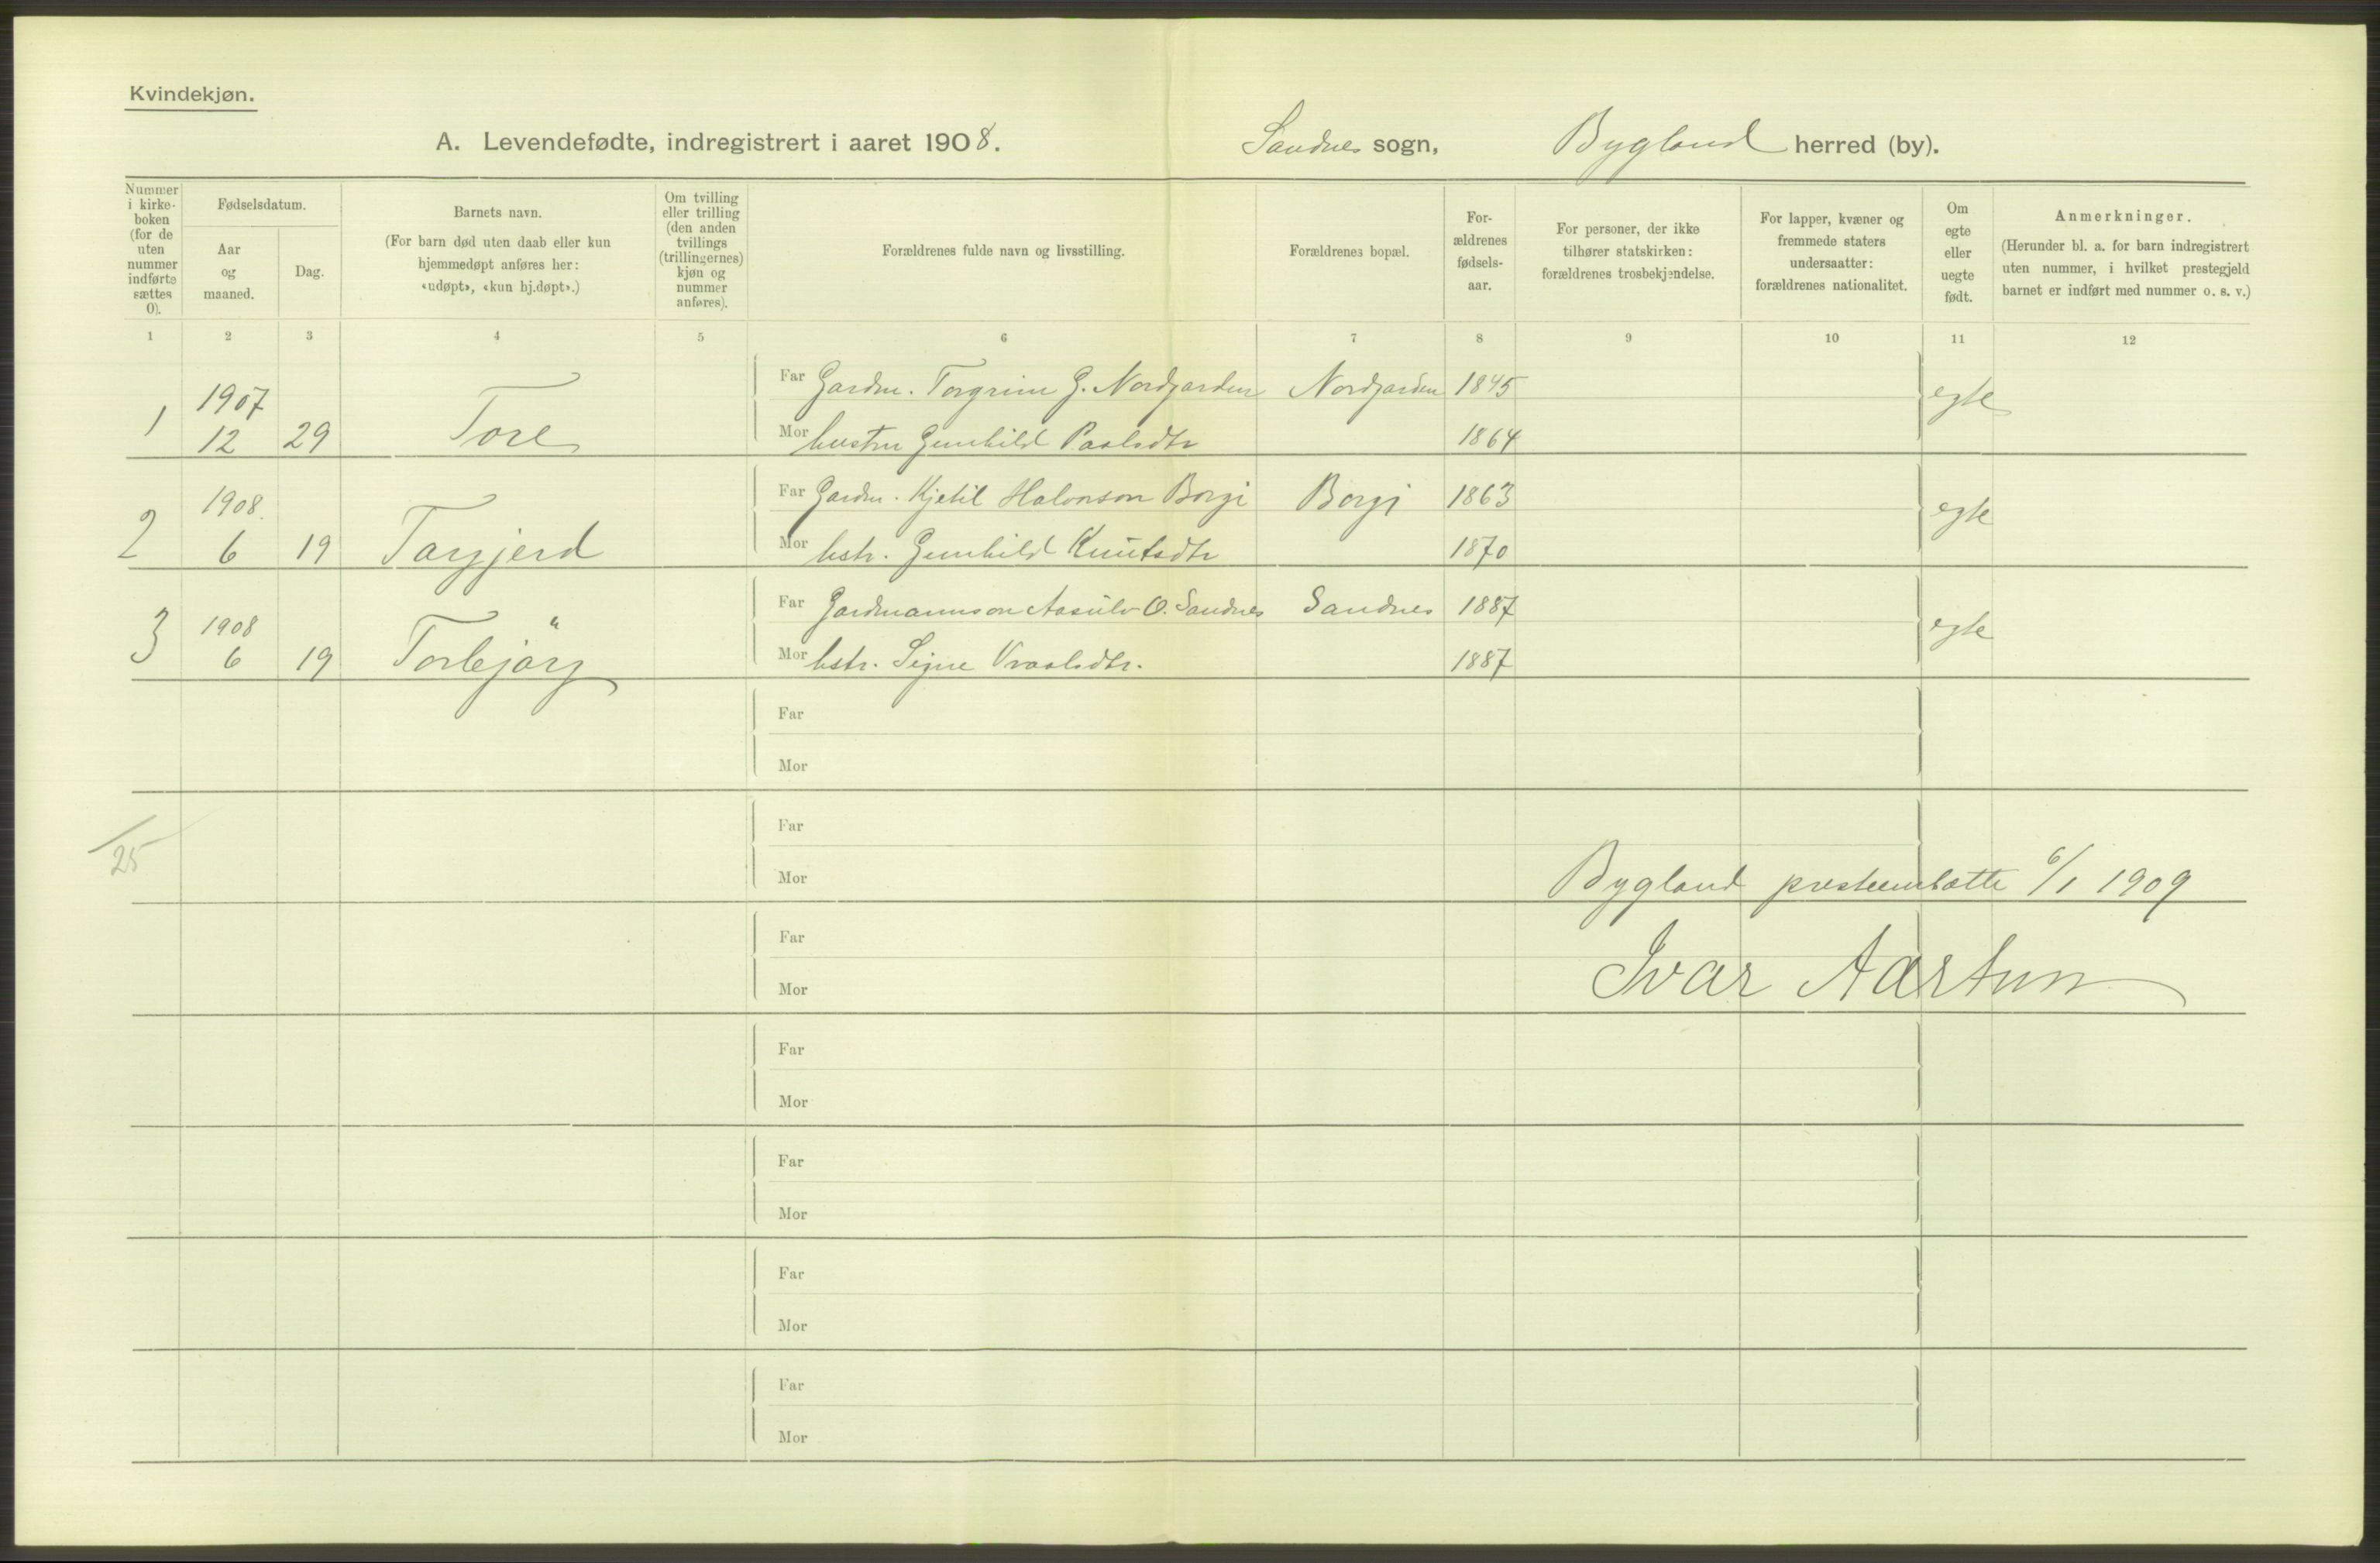 Kvindekjøn.
A. Levendefødte, indregistrert i aaret 1908. Sandnes sogn, Bygland herred (by).
Nummer i kirke-boken (for de uten nummer indførte sættes 0).
Fødselsdatum.
Aar og maaned.
Dag.
Barnets navn.
(For barn død uten daab eller kun hjemmedøpt anføres her: «udøpt», «kun hj.døpt».)
Om tvilling eller trilling (den anden tvillings (trillingernes) kjøn og nummer anføres).
Forældrenes fulde navn og livsstilling.
Forældrenes bopæl.
For-ældrenes fødsels-aar.
For personer, der ikke tilhører statskirken: forældrenes trosbekjendelse.
For lapper, kvæner og fremmede staters undersaatter: forældrenes nationalitet.
Om egte eller uegte født.
Anmerkninger.
(Herunder bl. a. for barn indregistrert uten nummer, i hvilket prestegjeld barnet er indført med nummer o. s. v.)
1 2 3 4 5 6 7 8 9 10 11 12
1 1907 12 29 Tore Far Gardm. Torgrim G. Nordgarden Nordgarden 1845 egte
Mor hustru Gunhild Paalsdtr 1864
2 1908. 6 19 Targjerd Far Gardm. Kjetil Halvorson Borgi Borgi 1863 egte
Mor hstr. Gunhild Knutsdtr 1870
3 1908 6 19 Torbjörg Far Gardmannson Aasulv O. Sandnes Sandnes 1887 egte
Mor hstr. Signe Vraalsdtr. 1887
Far
Mor
25
Far
Mor
Bygland presteembætte 6/1 1909
Far
Ivar Aartun
Mor
Far
Mor
Far
Mor
Far
Mor
Far
Mor